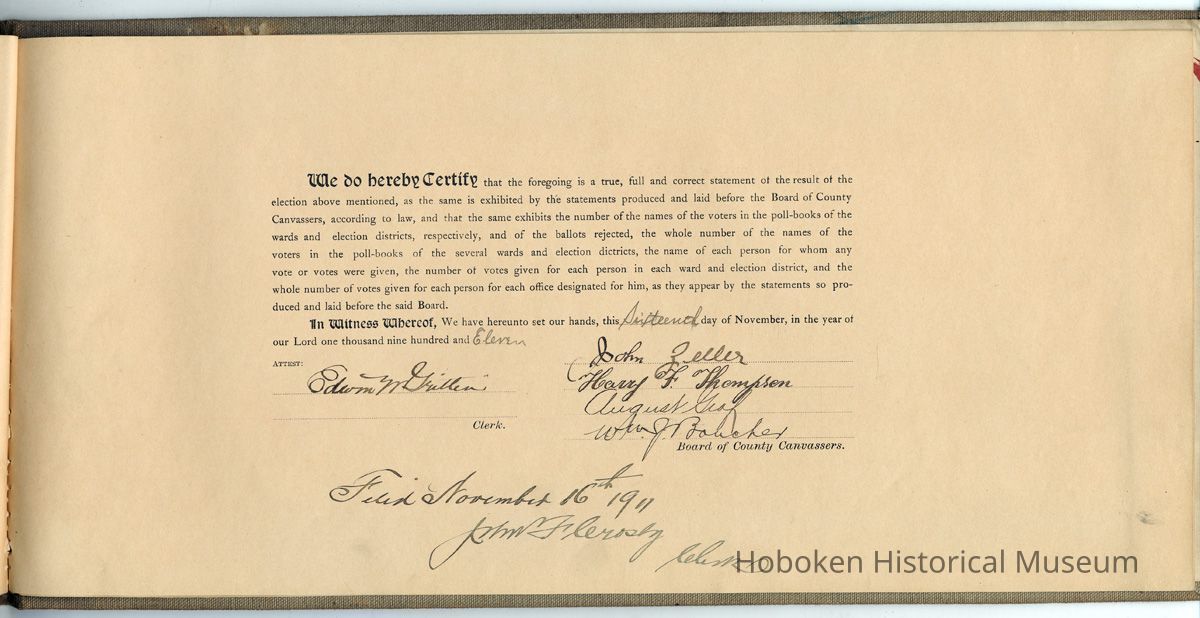 We do hereby Certify that the foregoing is a true, full and correct statement of the result of the
election above mentioned, as the same is exhibited by the statements produced and laid before the Board of County
Canvassers, according to law, and that the same exhibits the number of the names of the voters in the poll-books of the
wards and election districts, respectively, and of the ballots rejected, the whole number of the names of the
voters in the poll-books of the several wards and election dictricts, the name of each person for whom any
vote or votes were given, the number of votes given for each person in each ward and election district, and the
whole number of votes given for each person for each office designated for him, as they appear by the statements so pro-
duced and laid before the said Board.
In Witness Whereof, We have hereunto set our hands, this Sixteenth day of November, in the year of
our Lord one thousand nine hundred and Eleven
ATTEST:
John Zeller
Edwin
Harry F. Thompson
August Graf
Clerk.
Wm. J. Boucher
Board of County Canvassers.
Filed November 16th 1911
John
Clerk
Hoboken Historical Museum